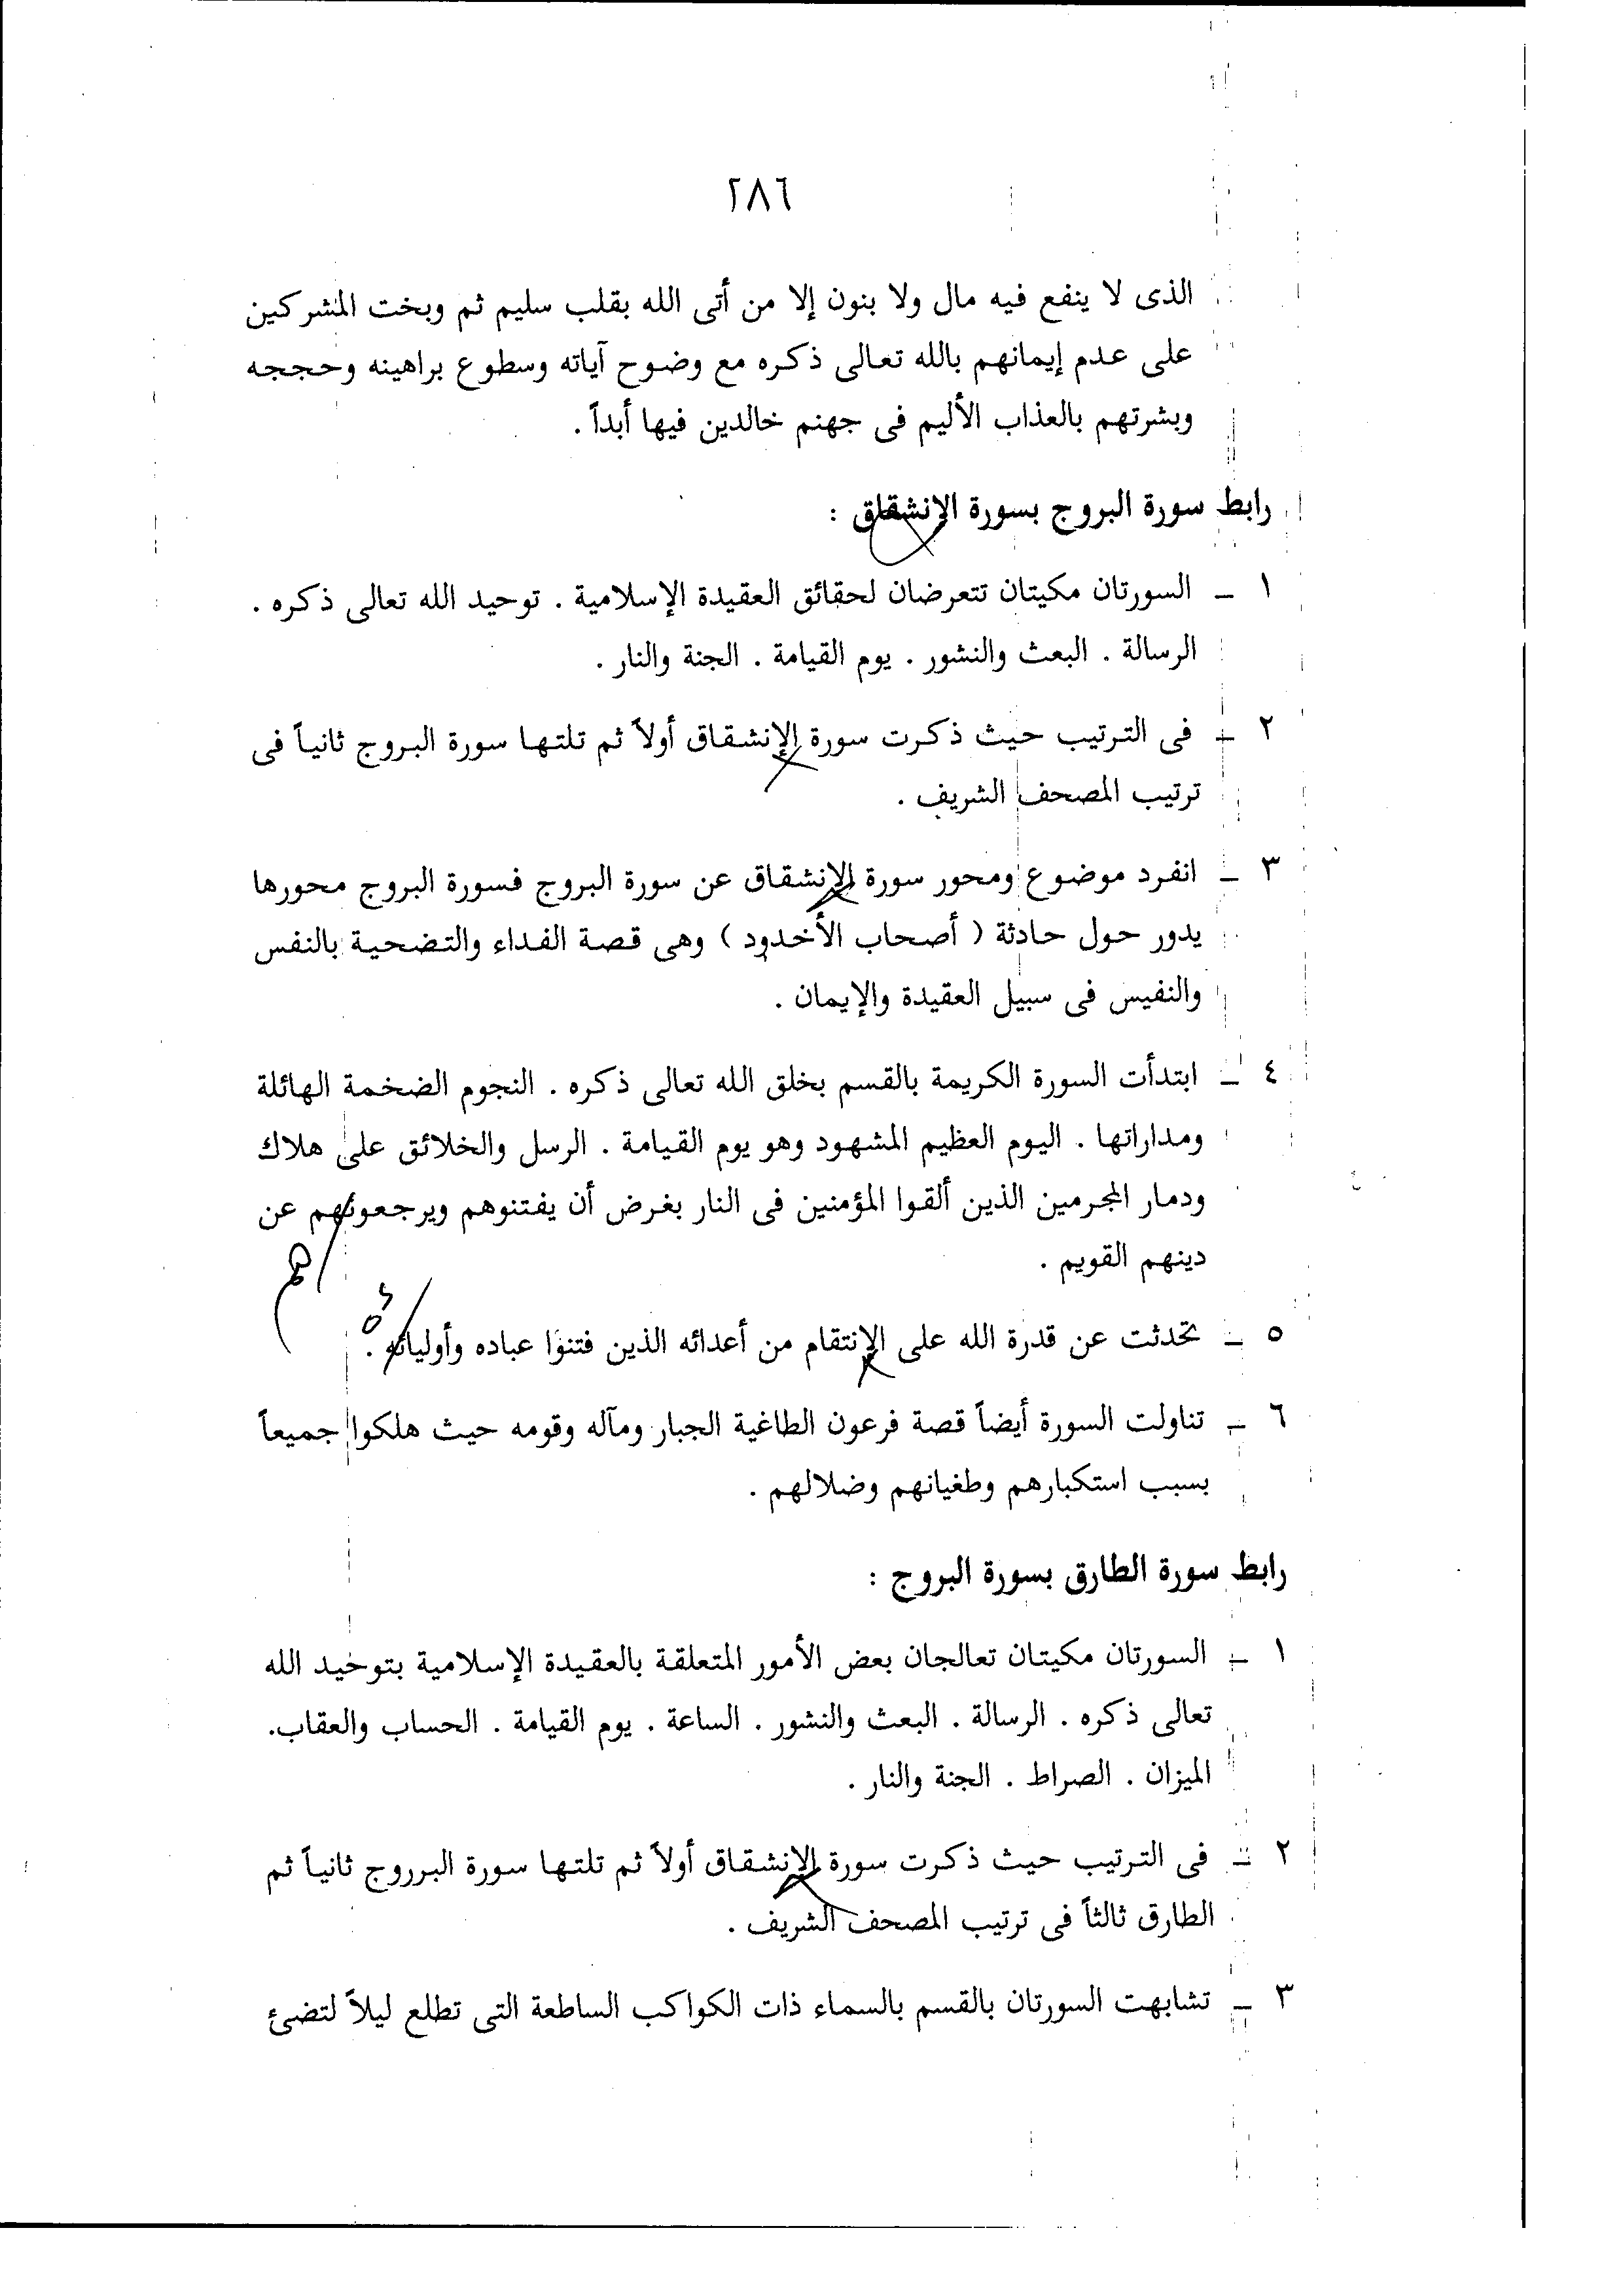 ٢٨٦
الذى لا ينفع فيه مال ولا بنون إلا من أتى الله بقلب سليم ثم وبخت المشركين
على عدم إيمانهم بالله تعالى ذكره مع وضوح آياته وسطوع براهينه وحججه
وبشرتهم بالعذاب الأليم فى جهنم خالدين فيها أبداً .
رابط سورة البروج بسورة الإنشقاق :
١ ـ السورتان مكيتان تتعرضان لحقائق العقيدة الإسلامية . توحيد الله تعالى ذكره .
الرسالة . البعث والنشور . يوم القيامة . الجنة والنار .
٢ ـ فى الترتيب حيث ذكرت سورة الإنشقاق أولاً ثم تلتها سورة البروج ثانياً فى
ترتيب المصحف الشريف .
٣ ـ انفرد موضوع ومحور سورة الإنشقاق عن سورة البروج فسورة البروج محورها
يدور حول حادثة ( أصحاب الأخدود ) وهى قصة الفداء والتضحية بالنفس
والنفيس فى سبيل العقيدة والإيمان .
٤ ـ ابتدأت السورة الكريمة بالقسم بخلق الله تعالى ذكره . النجوم الضخمة الهائلة
ومداراتها . اليوم العظيم المشهود وهو يوم القيامة . الرسل والخلائق على هلاك
ودمار المجرمين الذين ألقوا المؤمنين فى النار بغرض أن يفتنوهم ويرجعونهم عن
دينهم القويم .
٥ ـ تحدثت عن قدرة الله على الإنتقام من أعدائه الذين فتنوا عباده وأوليائه .
٦ ـ تناولت السورة أيضاً قصة فرعون الطاغية الجبار ومآله وقومه حيث هلكوا جميعاً
بسبب استكبارهم وطغيانهم وضلالهم .
رابط سورة الطارق بسورة البروج :
١ ـ السورتان مكيتان تعالجان بعض الأمور المتعلقة بالعقيدة الإسلامية بتوحيد الله
تعالى ذكره . الرسالة . البعث والنشور . الساعة . يوم القيامة . الحساب والعقاب.
الميزان . الصراط . الجنة والنار .
٢ ـ فى الترتيب حيث ذكرت سورة الإنشقاق أولاً ثم تلتها سورة البرروج ثانياً ثم
الطارق ثالثاً فى ترتيب المصحف الشريف .
٣ ـ تشابهت السورتان بالقسم بالسماء ذات الكواكب الساطعة التى تطلع ليلاً لتضئ